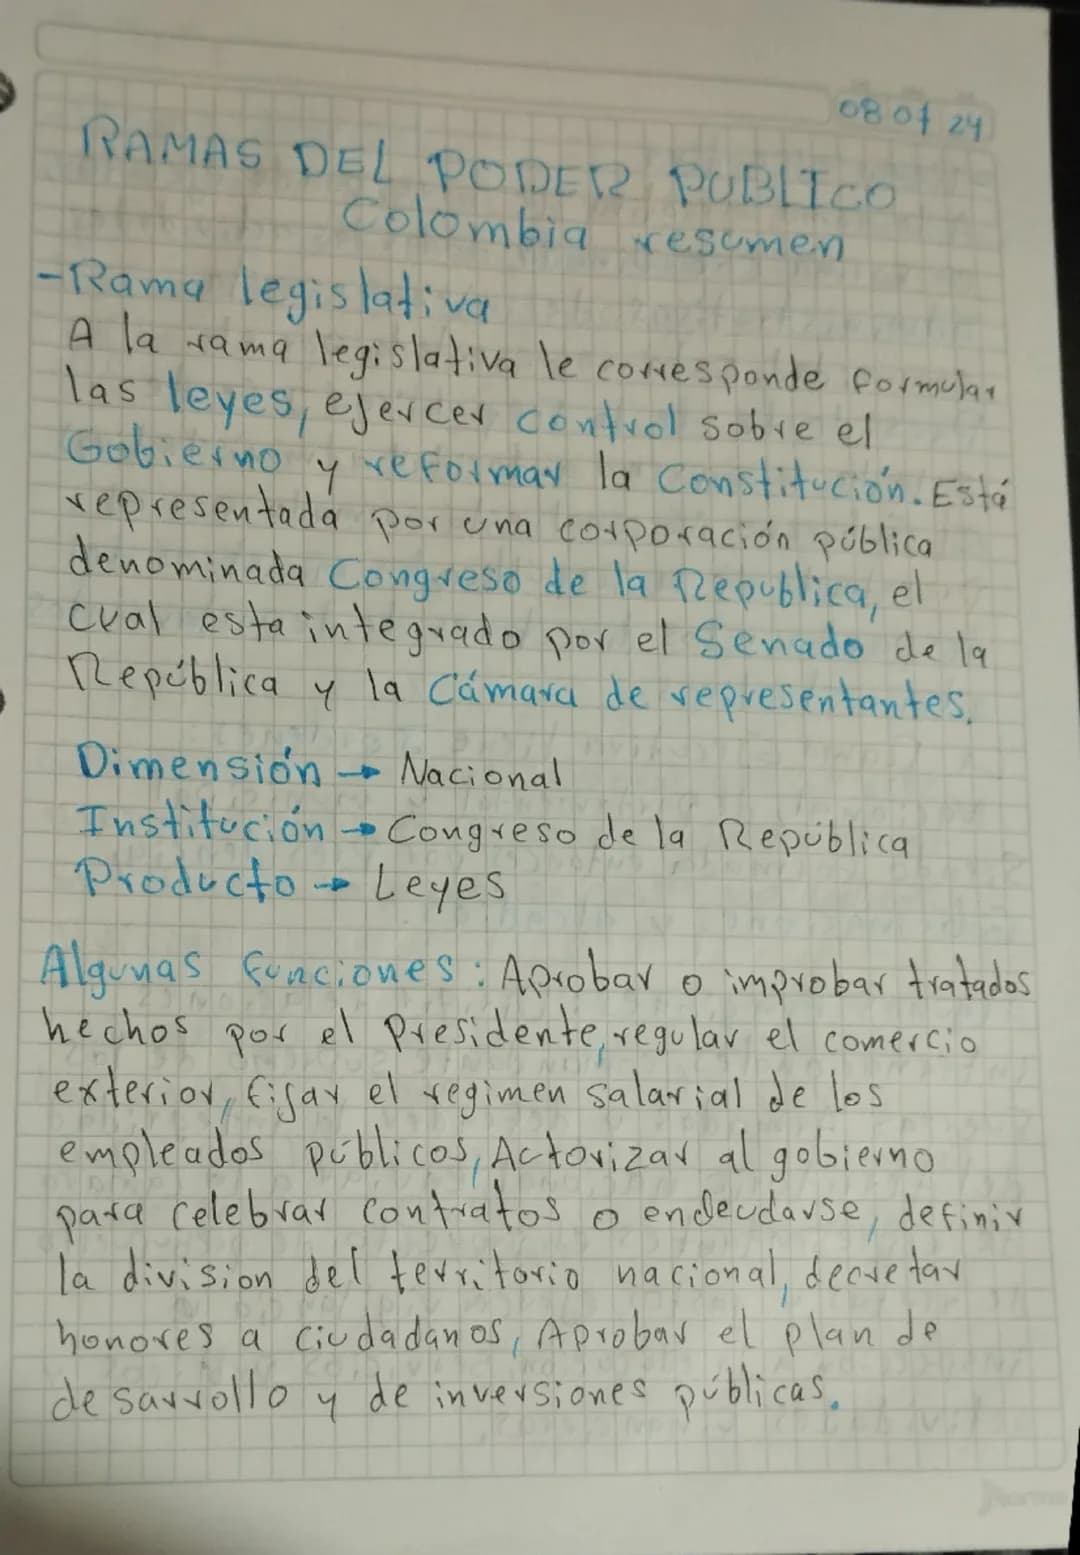 08 07 24
RAMAS DEL PODER PUBLICO
Colombia resumen
-Rama legislativa
A la rama legislativa le corresponde formular
las leyes, ejercer control sobre el
Gobierno y reformar la Constitución. Está
representada por una corporación pública
denominada Congreso de la Republica, el
cual esta integrado por el Senado de la
República y la Cámara de representantes.
Dimensión → Nacional
Institución → Congreso de la República
Producto → Leyes
Algunas funciones: Aprobar o improbar tratados
hechos por el Presidente, regular el comercio
exterior, fijar el regimen salarial de los
empleados públicos, Actorizar al gobierno
para celebrar contratos o endeudarse, definir
la division del territorio nacional, decretar
honores a ciudadanos, Aprobar el plan de
desarrollo y de inversiones públicas.
Norma